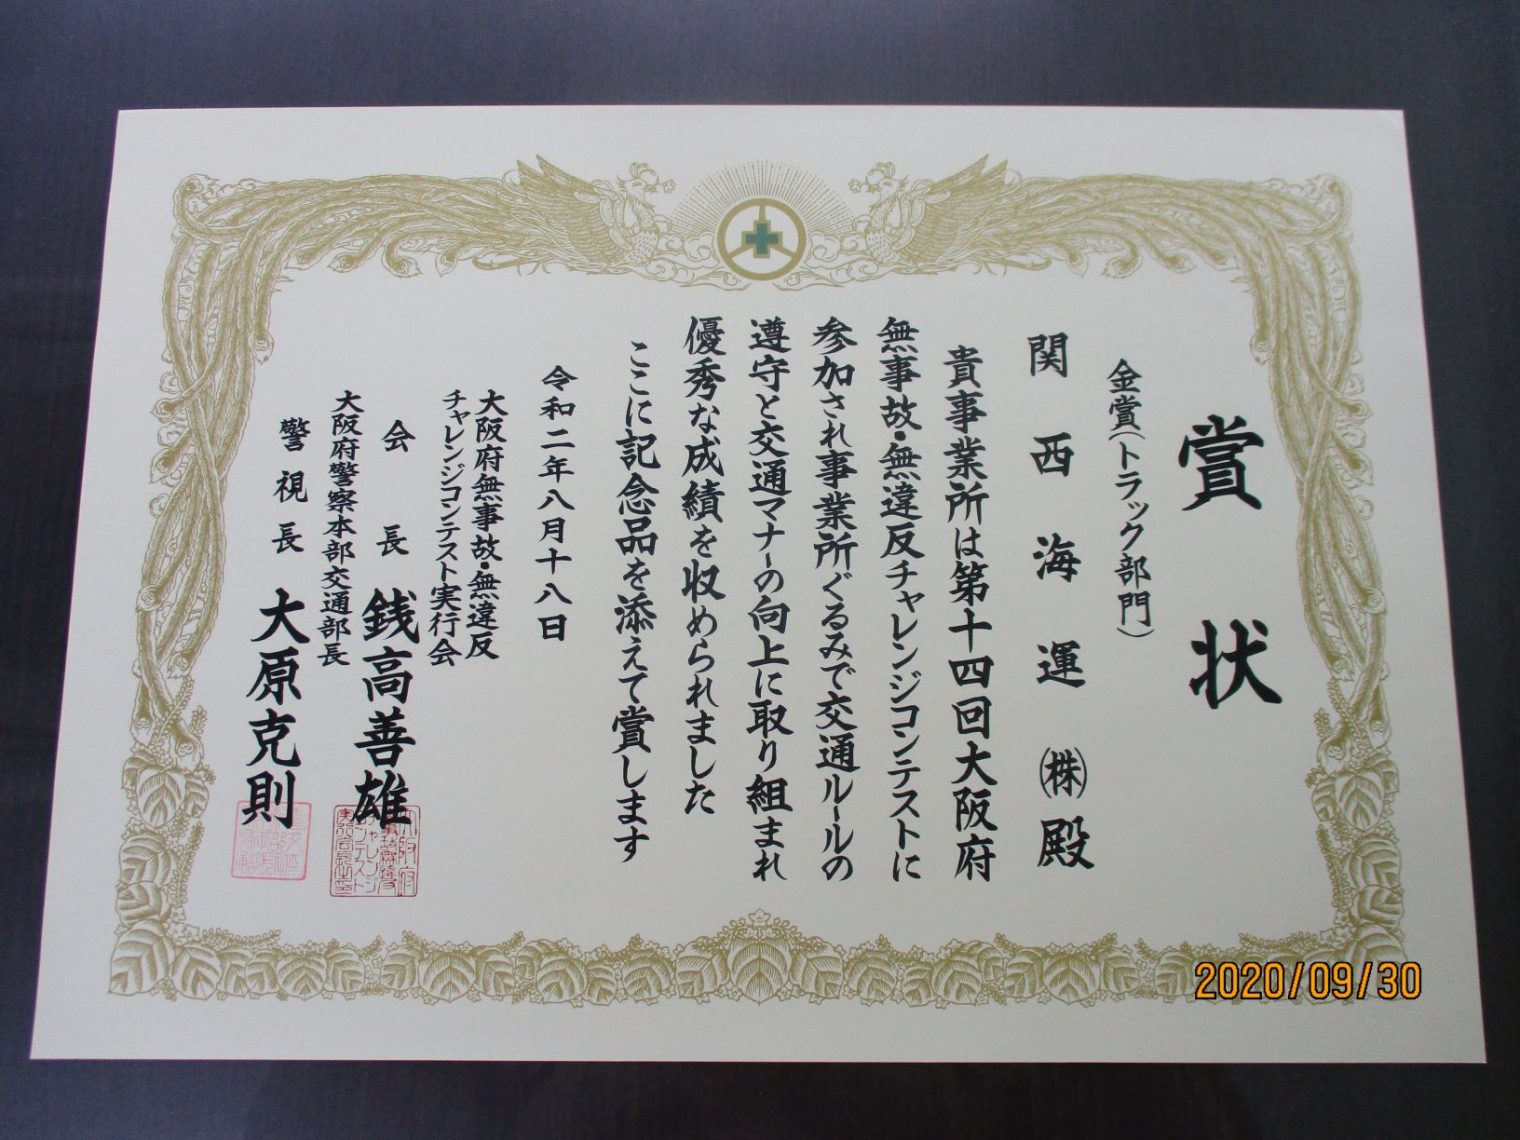 賞状
金賞(トラック部門)
関西海運㈱殿
貴事業所は第十四回大阪府
無事故・無違反チャレンジコンテストに
参加され事業所ぐるみで交通ルールの
遵守と交通マナーの向上に取り組まれ
優秀な成績を収められました
ここに記念品を添えて賞します
令和二年八月十八日
大阪府無事故・無違反
チャレンジコンテスト実行会
会長 銭高善雄
大阪府警察本部交通部長
警視長 大原克則
2020/09/30